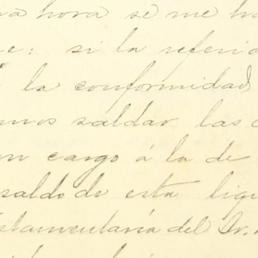 hora se me ha
e: si la referid
la conformidad
mos saldar las c
un cargo á la de
saldo de esta liqu
estamentaría del Dr.